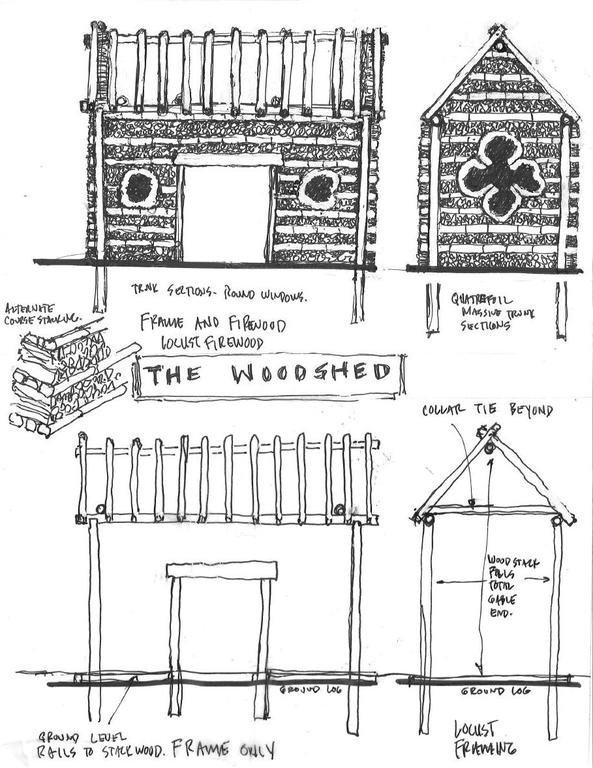 TRNK SECTIONS - ROUND WINDOWS.
QUATREFOIL
MASSIVE TRUNK
SECTIONS
ALTERNATE
COURSE STACKING.
FRAME AND FIREWOOD
LOCUST FIREWOOD
THE WOODSHED
COLLAR TIE BEYOND
WOOD STACK
FILLS
TOTAL
GABLE
END.
GROUND LOG
GROUND LOG
GROUND LEVEL
RAILS TO STACK WOOD. FRAME ONLY
LOCUST
FRAMING